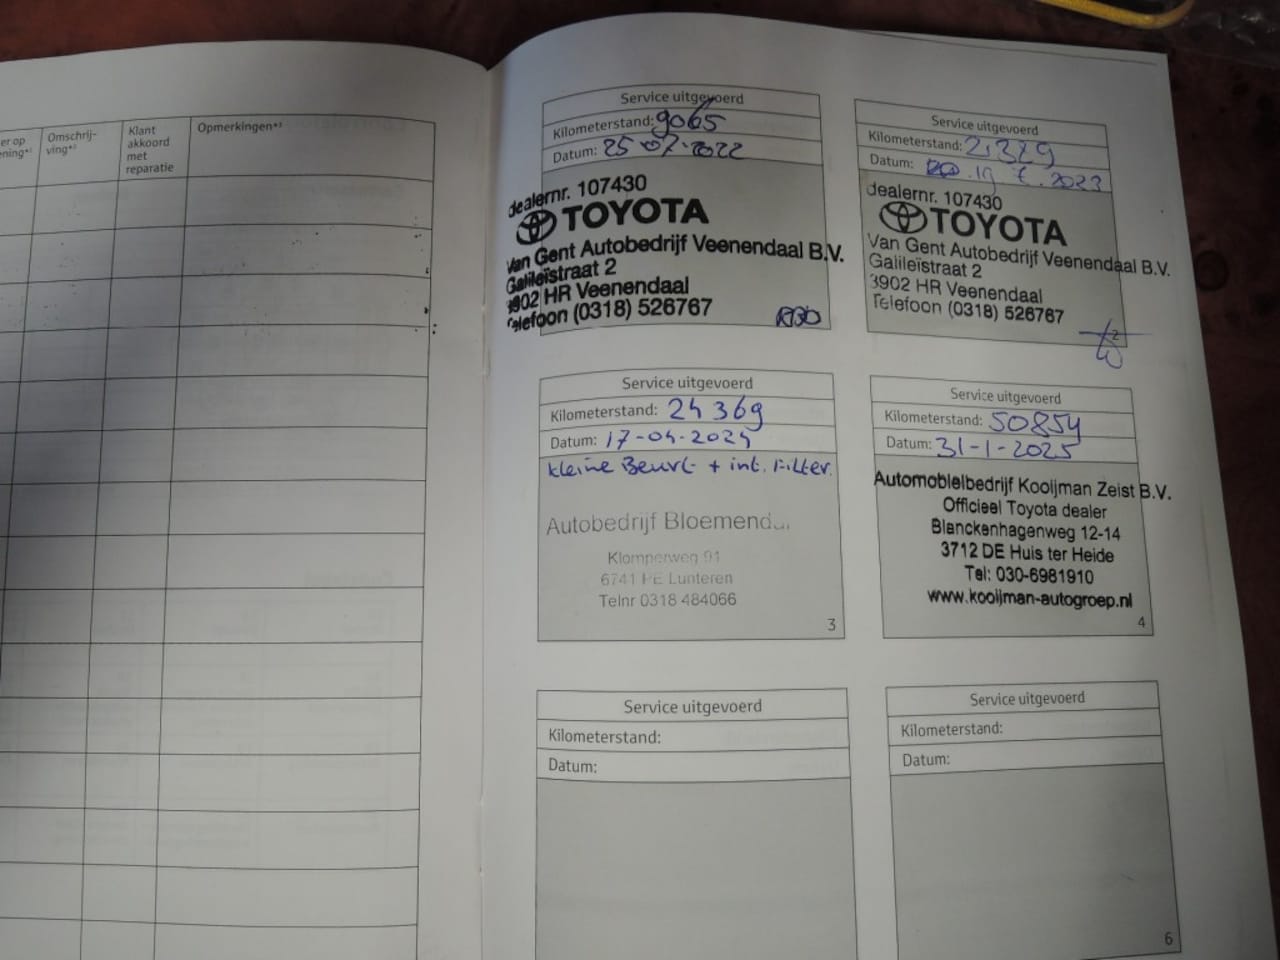 er op
ening*¹
Omschrij-
ving*²
Klant
akkoord
met
reparatie
Opmerkingen*³
Service uitgevoerd
Kilometerstand: 9065
Datum: 25-07-2022
dealernr. 107430
TOYOTA
Van Gent Autobedrijf Veenendaal B.V.
Galileïstraat 2
3902 HR Veenendaal
Telefoon (0318) 526767
Service uitgevoerd
Kilometerstand: 21329
Datum: 19 7. 2023
dealernr. 107430
TOYOTA
Van Gent Autobedrijf Veenendaal B.V.
Galileïstraat 2
3902 HR Veenendaal
Telefoon (0318) 526767
2
Service uitgevoerd
Kilometerstand: 24369
Datum: 17-04-2024
kleine Beurt + int. Filter.
Autobedrijf Bloemendal
Klomperweg 91
6741 PE Lunteren
Telnr 0318 484066
3
Service uitgevoerd
Kilometerstand: 50854
Datum: 31-1-2025
Automobielbedrijf Kooijman Zeist B.V.
Officieel Toyota dealer
Blanckenhagenweg 12-14
3712 DE Huis ter Heide
Tel: 030-6981910
www.kooijman-autogroep.nl
4
Service uitgevoerd
Kilometerstand:
Datum:
Service uitgevoerd
Kilometerstand:
Datum:
6